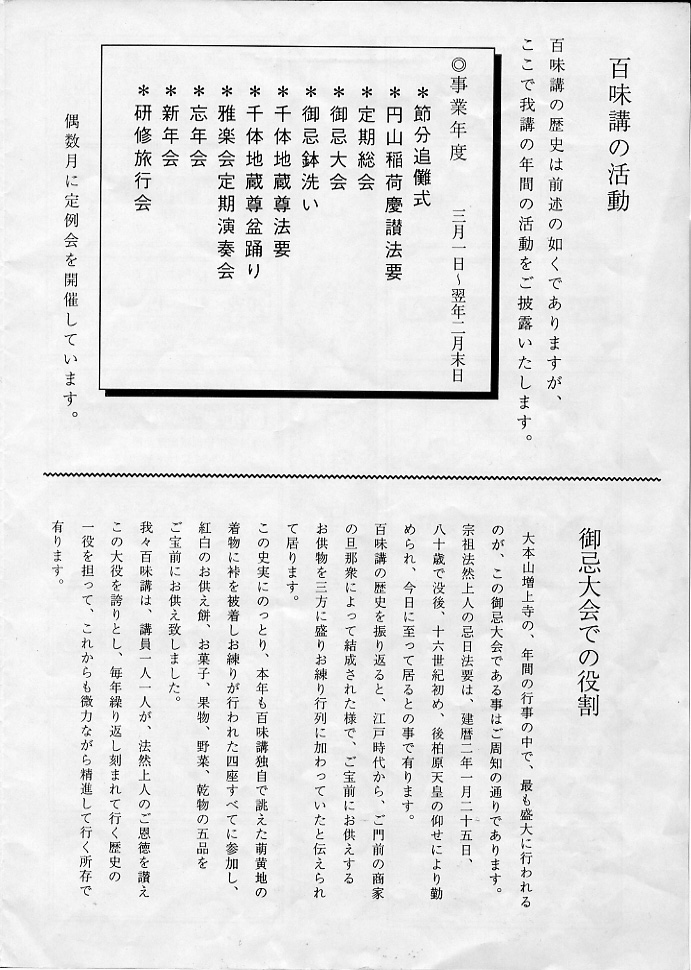 百味講の活動
百味講の歴史は前述の如くでありますが、
ここで我講の年間の活動をご披露いたします。
◎事業年度　三月一日～翌年二月末日
＊節分追儺式
＊円山稲荷慶讃法要
＊定期総会
＊御忌大会
＊御忌鉢洗い
＊千体地蔵尊法要
＊千体地蔵尊盆踊り
＊雅楽会定期演奏会
＊忘年会
＊新年会
＊研修旅行会
偶数月に定例会を開催しています。
御忌大会での役割
大本山増上寺の、年間の行事の中で、最も盛大に行われる
のが、この御忌大会である事はご周知の通りであります。
宗祖法然上人の忌日法要は、建暦二年一月二十五日、
八十歳で没後、十六世紀初め、後柏原天皇の仰せにより勤
められ、今日に至って居るとの事で有ります。
百味講の歴史を振り返ると、江戸時代から、ご門前の商家
の旦那衆によって結成された様で、ご宝前にお供えする
お供物を三方に盛りお練り行列に加わっていたと伝えられ
て居ります。
この史実にのっとり、本年も百味講独自で誂えた萌黄地の
着物に裃を被着しお練りが行われた四座すべてに参加し、
紅白のお供え餅、お菓子、果物、野菜、乾物の五品を
ご宝前にお供え致しました。
我々百味講は、講員一人一人が、法然上人のご恩徳を讃え
この大役を誇りとし、毎年繰り返し刻まれて行く歴史の
一役を担って、これからも微力ながら精進して行く所存で
有ります。